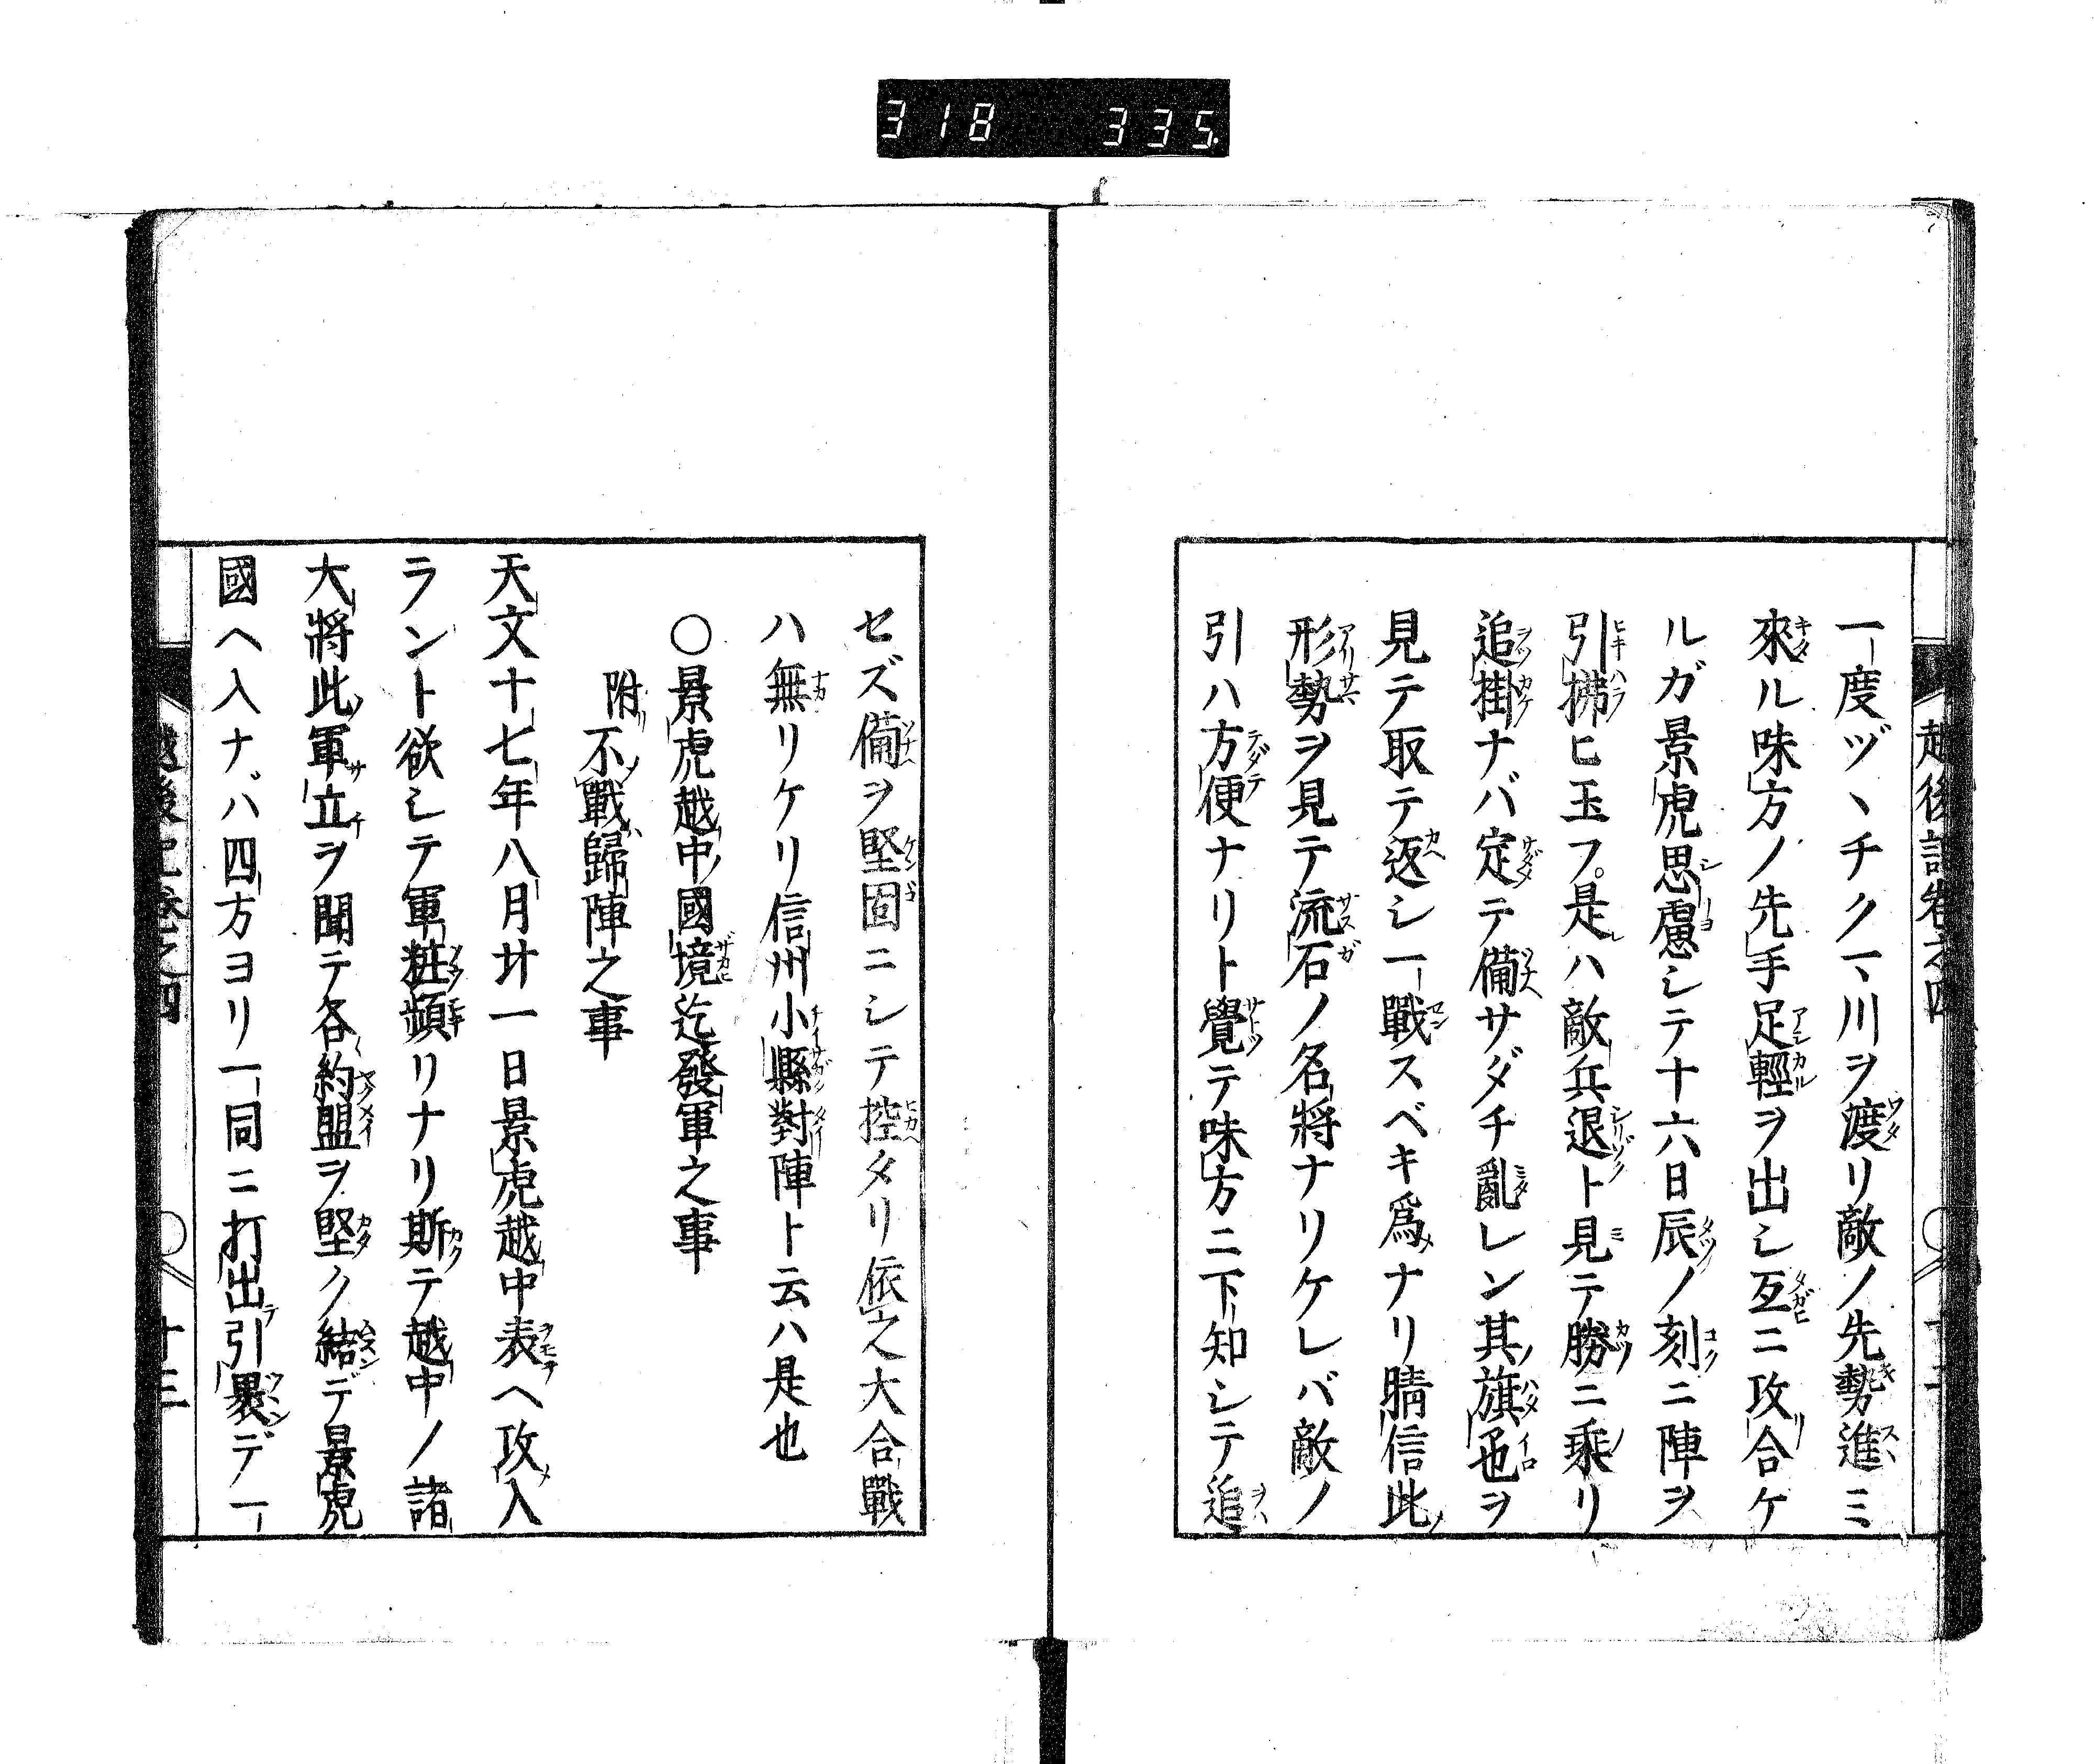 318 335
越後記卷之四
一度ヅヽチクマ川ヲ渡リ敵ノ先勢進ミ
來ル味方ノ先手足輕ヲ出シ互ニ攻合ケ
ルガ景虎思慮シテ十六日辰ノ刻ニ陣ヲ
引拂ヒ玉フ是ハ敵兵退ト見テ勝ニ乘リ
追掛ナバ定テ備サダチ亂レン其旗色ヲ
見テ取テ返シ一戰スベキ爲ナリ晴信此
形勢ヲ見テ流石ノ名將ナリケレバ敵ノ
引ハ方便ナリト覺テ味方ニ下知シテ追
セズ備ヲ堅固ニシテ控タリ依之大合戰
ハ無リケリ信州小縣對陣ト云ハ是也
○景虎越中國境迄發軍之事
附不戰歸陣之事
天文十七年八月廿一日景虎越中表ヘ攻入
ラント欲シテ軍粧頻リナリ斯テ越中ノ諸
大將此軍立ヲ聞テ各約盟ヲ堅ク結デ景虎
國ヘ入ナバ四方ヨリ一同ニ打出引裹デ一
越後記卷之四
十三